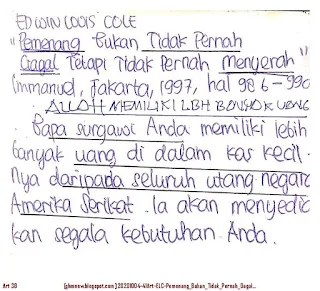 EDWIN LOUIS COLE
"Pemenang Bukan Tidak Pernah
Gagal Tetapi Tidak Pernah menyerah"
Immanuel, Jakarta, 1997, hal 986-990
. ALLAH MEMILIKI LBH BANYAK UANG
. Bapa surgawi Anda memiliki lebih
banyak uang di dalam kas kecil-
Nya daripada seluruh utang negara
Amerika Serikat. Ia akan menyedia
kan segala kebutuhan Anda.
Art 38 [ghnnnw.blogspot.com] 20201004-4/Art-ELC-Pemenang_Bukan_Tidak_Pernah_Gagal...